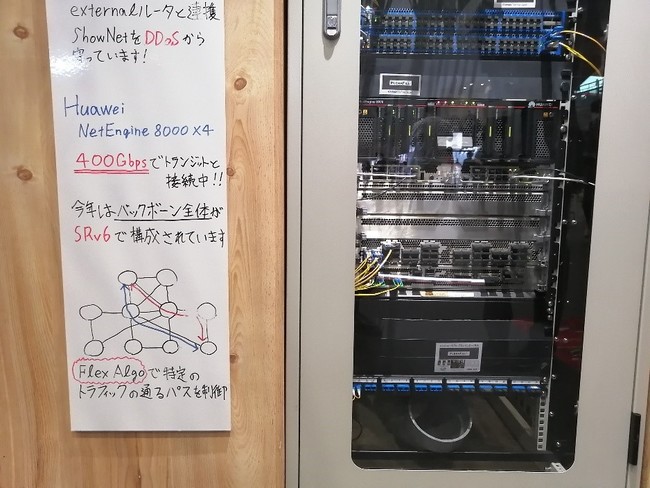 externalルータと連携
ShowNetをDDoSから
守っています!
Huawei
NetEngine 8000 X4
400Gbpsでトランジットと
接続中!!
今年はバックボーン全体が
SRv6で構成されています
Flex Algoで特定の
トラフィックの通るパスを制御